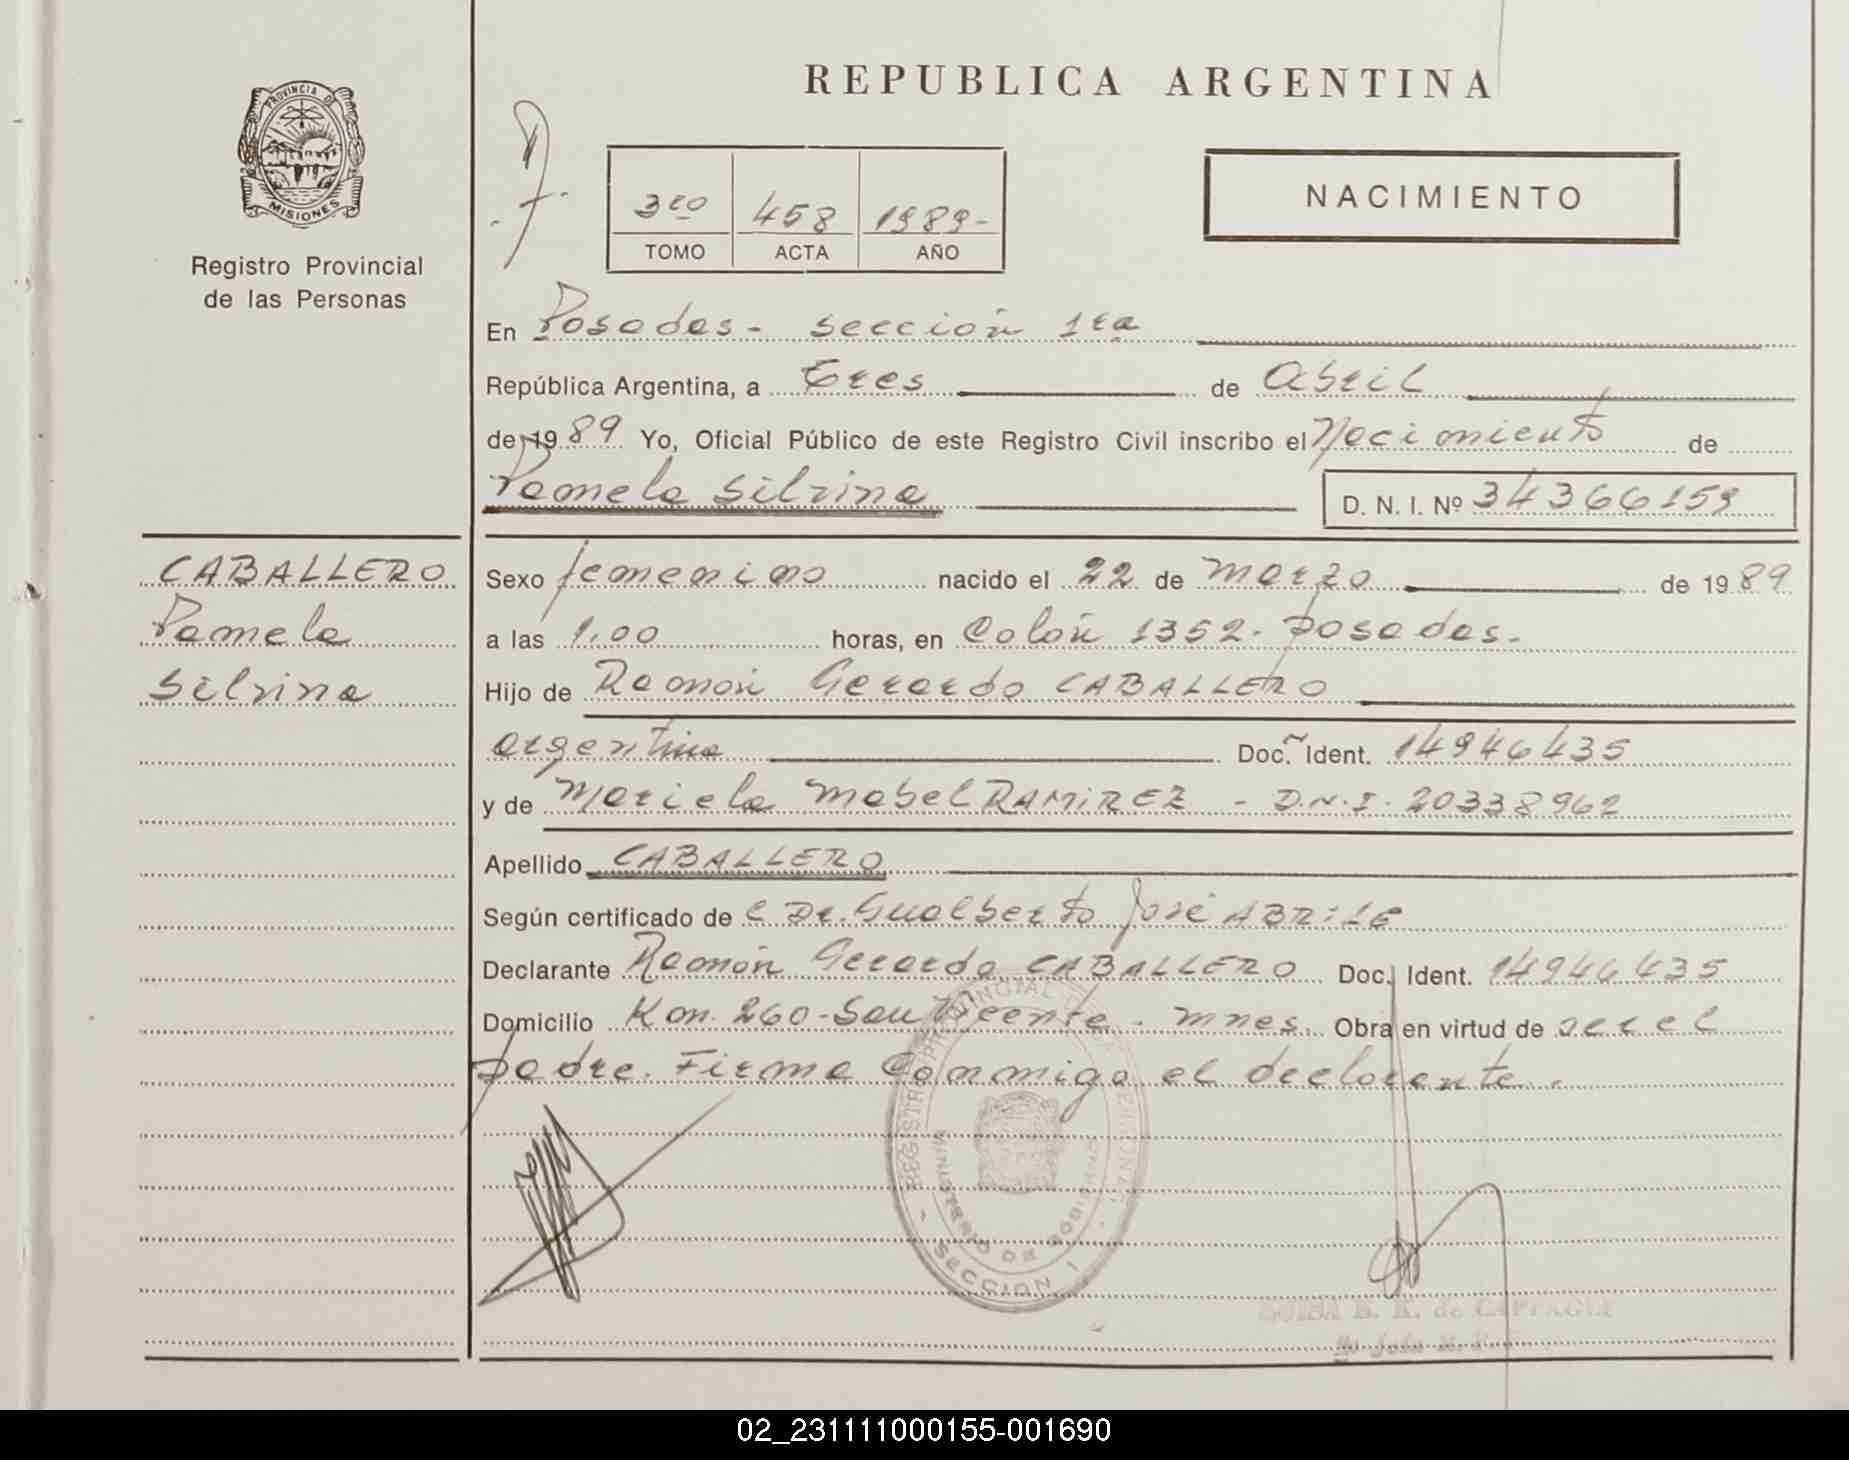 REPUBLICA ARGENTINA
PROVINCIA DE
MISIONES
Registro Provincial
de las Personas
3ro 458 1989-
TOMO ACTA AÑO
NACIMIENTO
En Posadas- sección 1ra
República Argentina, a tres de Abril
de 1989 Yo, Oficial Público de este Registro Civil inscribo el Nacimiento de
Pamela Silvina D. N. I. Nº 34366159
CABALLERO
Pamela
Silvina
Sexo femenino nacido el 22 de marzo de 1989
a las 1.00 horas, en Colón 1352- Posadas-
Hijo de Ramón Gerardo CABALLERO
argentino Doc. Ident. 14946435
y de Mariela Mabel RAMIREZ - D.N.I. 20338962
Apellido CABALLERO
Según certificado de l Dr. Gualberto José ABRILE
Declarante Ramón Gerardo CABALLERO Doc. Ident. 14946435
Domicilio Km. 260-San Vicente- Mnes. Obra en virtud de ser el
padre. Firma Conmigo el declarante.
REGISTRO PROVINCIAL DE LAS PERSONAS
MINISTERIO DE GOBIERNO
- SECCION 1 -
B. K. de
02_231111000155-001690